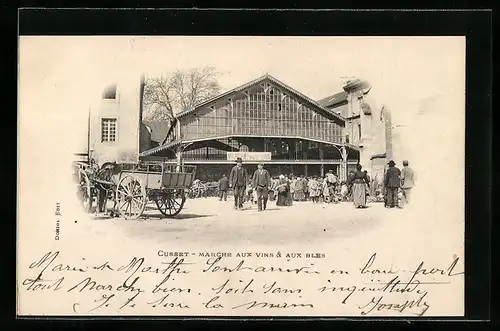 CUSSET - MARCHE AUX VINS & AUX BLES
Marie et Marthe sont arrivée en bon port
tout marche bien. soit sans inquiétude
Je te serre la main Joseph